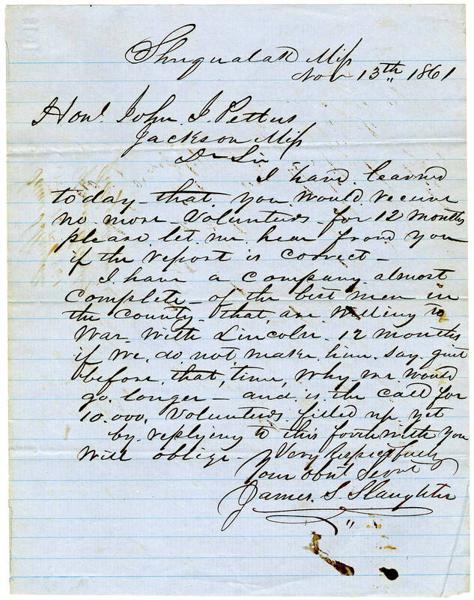 Shuqualak Miss
Nov 13th 1861
Hon. John J Pettus
Jackson Miss
Dr Sir
I have learned
today that you would receive
no more Volunteers for 12 months
please let me hear from you
if the report is correct —
I have a company almost
complete of the best men in
the county that are willing to
War with Lincoln 12 months
if we do not make him say quit
before that time, why we would
go longer — and is the call for
10.000. Volunteers filled up yet
by replying to this forthwith you
will oblige — Very Respectfully
Your obnt Servt
James. S. Slaughter